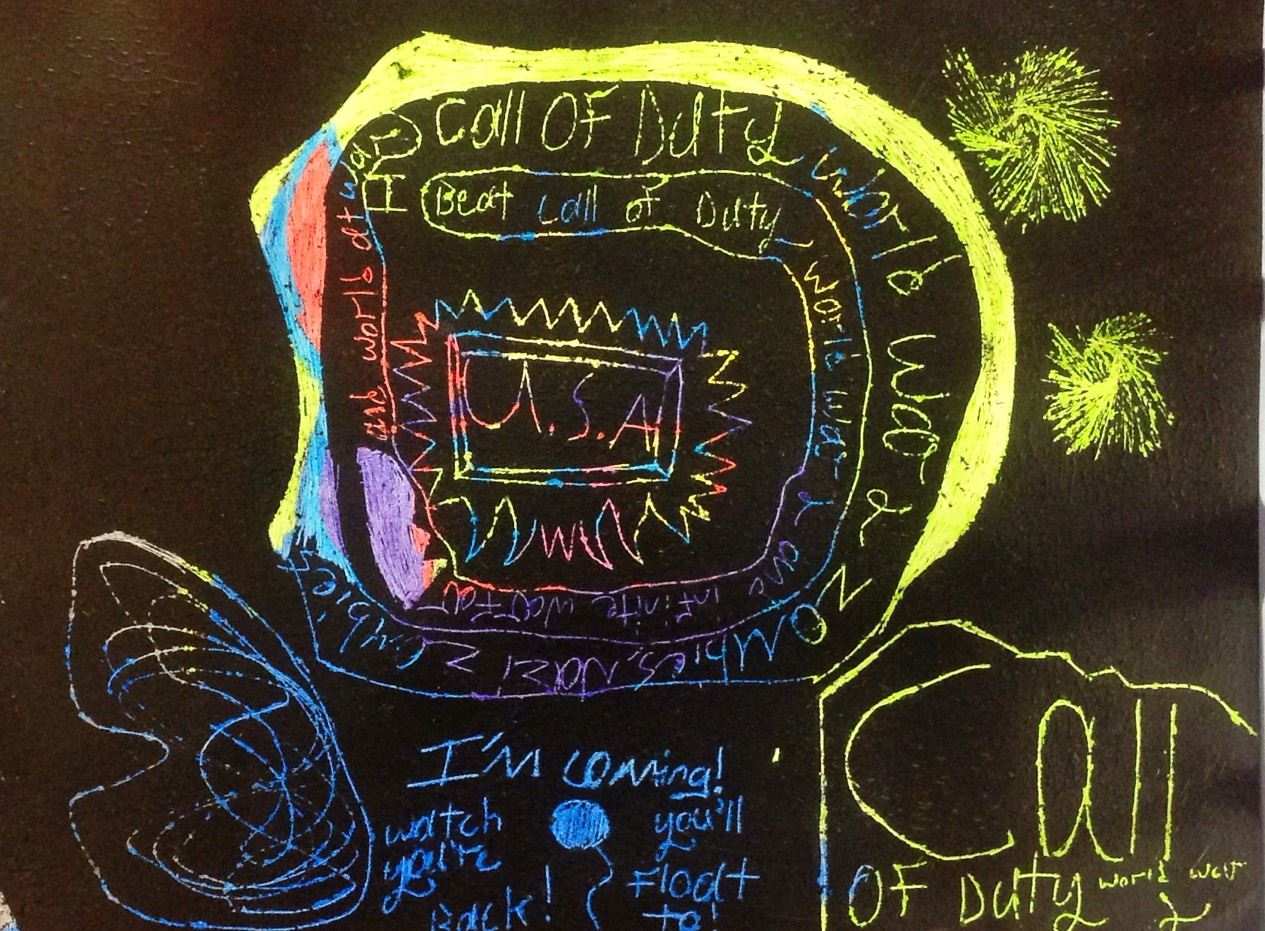 Call OF Duty World War 2 Zombies, Nazi Zombies
Beat Call of Duty, World War 2 and infinite warfar and world at war
U.S.A
I'm coming!
watch
you're
Back!
you'll
Float
to!
Call
OF Duty world war
2